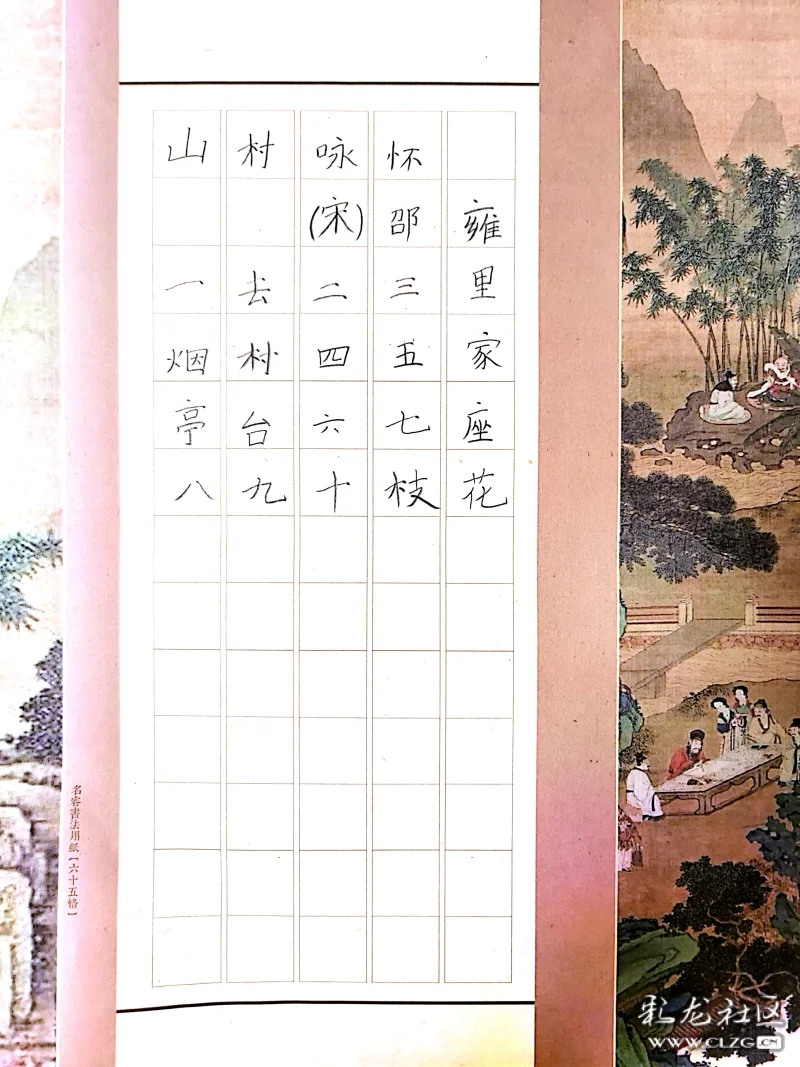 山村咏怀
(宋)邵雍
一去二三里
烟村四五家
亭台六七座
八九十枝花
名睿書法用紙【六十五格】
彩龙社区
WWW.CLZG.CN